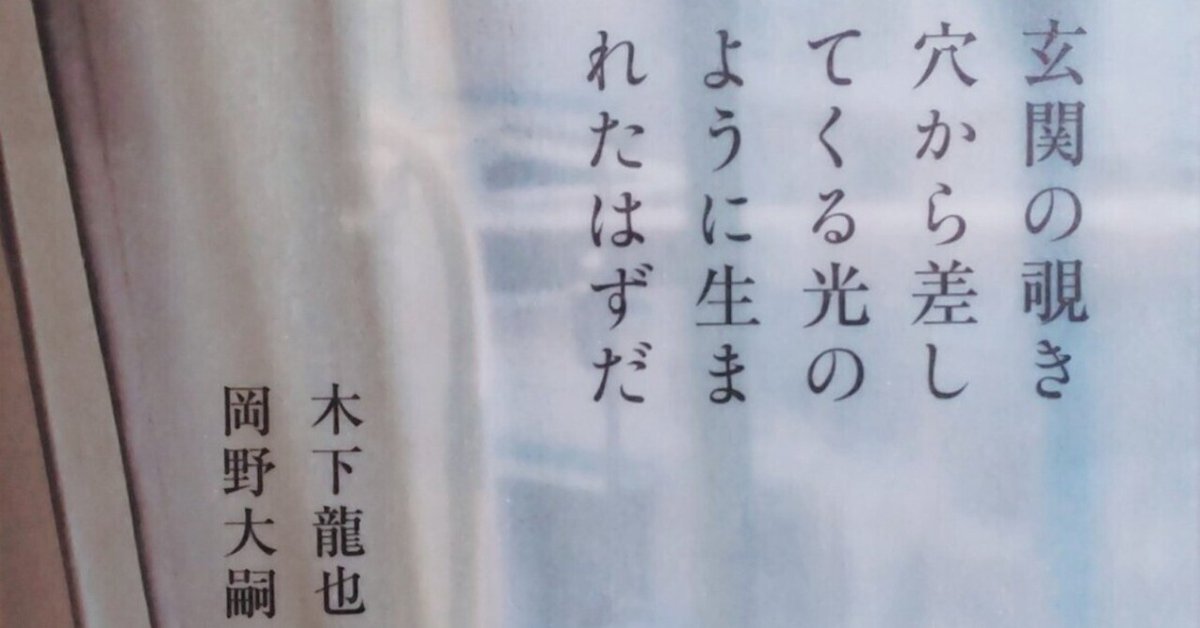 玄関の覗き
穴から差し
てくる光の
ように生ま
れたはずだ
木下龍也
岡野大嗣